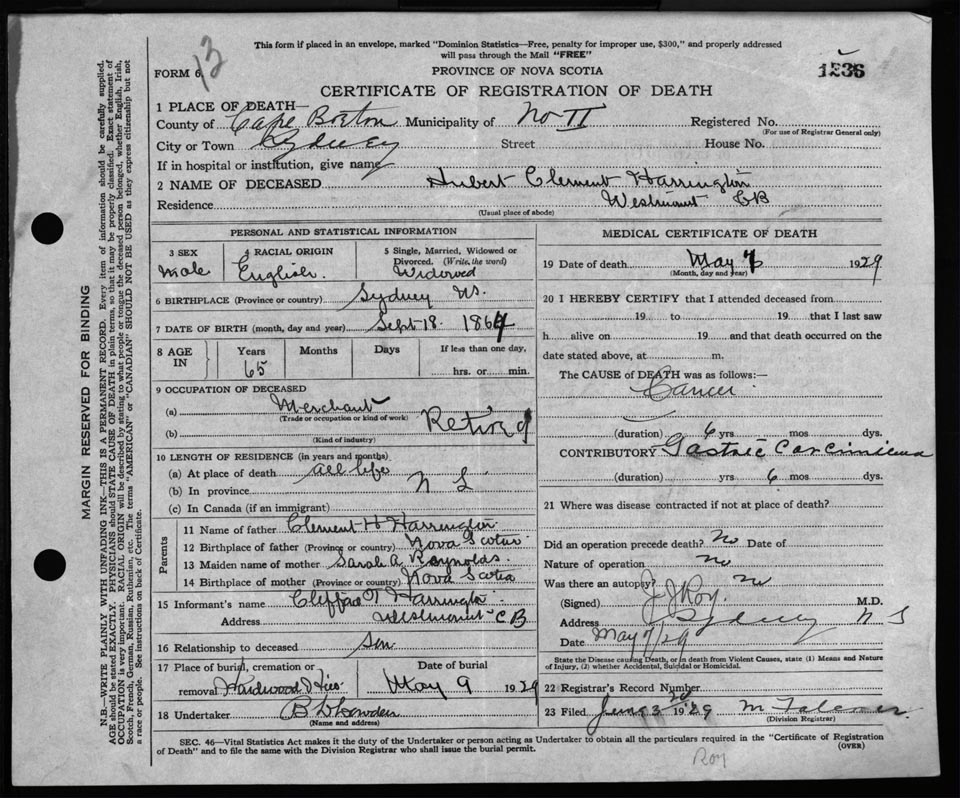 This form if placed in an envelope, marked "Dominion Statistics—Free, penalty for improper use, $300," and properly addressed
will pass through the Mail "FREE"
13
FORM 6.
PROVINCE OF NOVA SCOTIA
1236
CERTIFICATE OF REGISTRATION OF DEATH
1 PLACE OF DEATH—
County of Cape Breton Municipality of No II Registered No.
(For use of Registrar General only)
City or Town Sydney Street House No.
If in hospital or institution, give name
2 NAME OF DECEASED Hubert Clement Harrington
Residence Westmount CB
(Usual place of abode)
PERSONAL AND STATISTICAL INFORMATION
3 SEX 4 RACIAL ORIGIN 5 Single, Married, Widowed or
Divorced. (Write the word)
Male English. Widowed
6 BIRTHPLACE (Province or country) Sydney NS.
7 DATE OF BIRTH (month, day and year) Sept 18. 1864
8 AGE IN Years Months Days If less than one day,
65 hrs. or min.
9 OCCUPATION OF DECEASED
(a) Merchant
(Trade or occupation or kind of work)
Retired
(b)
(Kind of industry)
10 LENGTH OF RESIDENCE (in years and months)
(a) At place of death all life
(b) In province N S
(c) In Canada (if an immigrant)
Parents
11 Name of father Clement H Harrington
12 Birthplace of father (Province or country) Nova Scotia
13 Maiden name of mother Sarah A Reynolds.
14 Birthplace of mother (Province or country) Nova Scotia
15 Informant's name Harrington
Address Westmount CB
16 Relationship to deceased Son
17 Place of burial, cremation or Date of burial
removal Hardwood Hill May 9 1929
18 Undertaker
(Name and address)
MEDICAL CERTIFICATE OF DEATH
19 Date of death May 7 1929
(Month, day and year)
20 I HEREBY CERTIFY that I attended deceased from
19 to 19 that I last saw
h alive on 19 and that death occurred on the
date stated above, at m.
The CAUSE of DEATH was as follows:—
Cancer
(duration) 6 yrs mos dys.
CONTRIBUTORY Gastric Carcinoma
(duration) yrs 6 mos dys.
21 Where was disease contracted if not at place of death?
Did an operation precede death? No Date of
Nature of operation No
Was there an autopsy? No
(Signed) J J Roy. M.D.
Address Sydney N S
Date May 7/29
State the Disease causing Death, or in death from Violent Causes, state (1) Means and Nature
of Injury, (2) whether Accidental, Suicidal or Homicidal.
22 Registrar's Record Number
23 Filed June 3 1929
(Division Registrar)
SEC. 46—Vital Statistics Act makes it the duty of the Undertaker or person acting as Undertaker to obtain all the particulars required in the "Certificate of Registration
of Death" and to file the same with the Division Registrar who shall issue the burial permit.
(OVER)
Roy
MARGIN RESERVED FOR BINDING
N.B.—WRITE PLAINLY WITH UNFADING INK—THIS IS A PERMANENT RECORD. Every item of information should be carefully supplied.
AGE should be stated EXACTLY. PHYSICIANS should STATE CAUSE OF DEATH in plain terms, so that it may be properly classified. Exact statement of
OCCUPATION is very important. RACIAL ORIGIN will be described by stating to what people or tongue the deceased person belonged, whether English, Irish,
Scotch, French, German, Russian, Ruthenian, etc. The terms "AMERICAN" or "CANADIAN" SHOULD NOT BE USED as they express citizenship but not
a race or people. See instructions on back of Certificate.